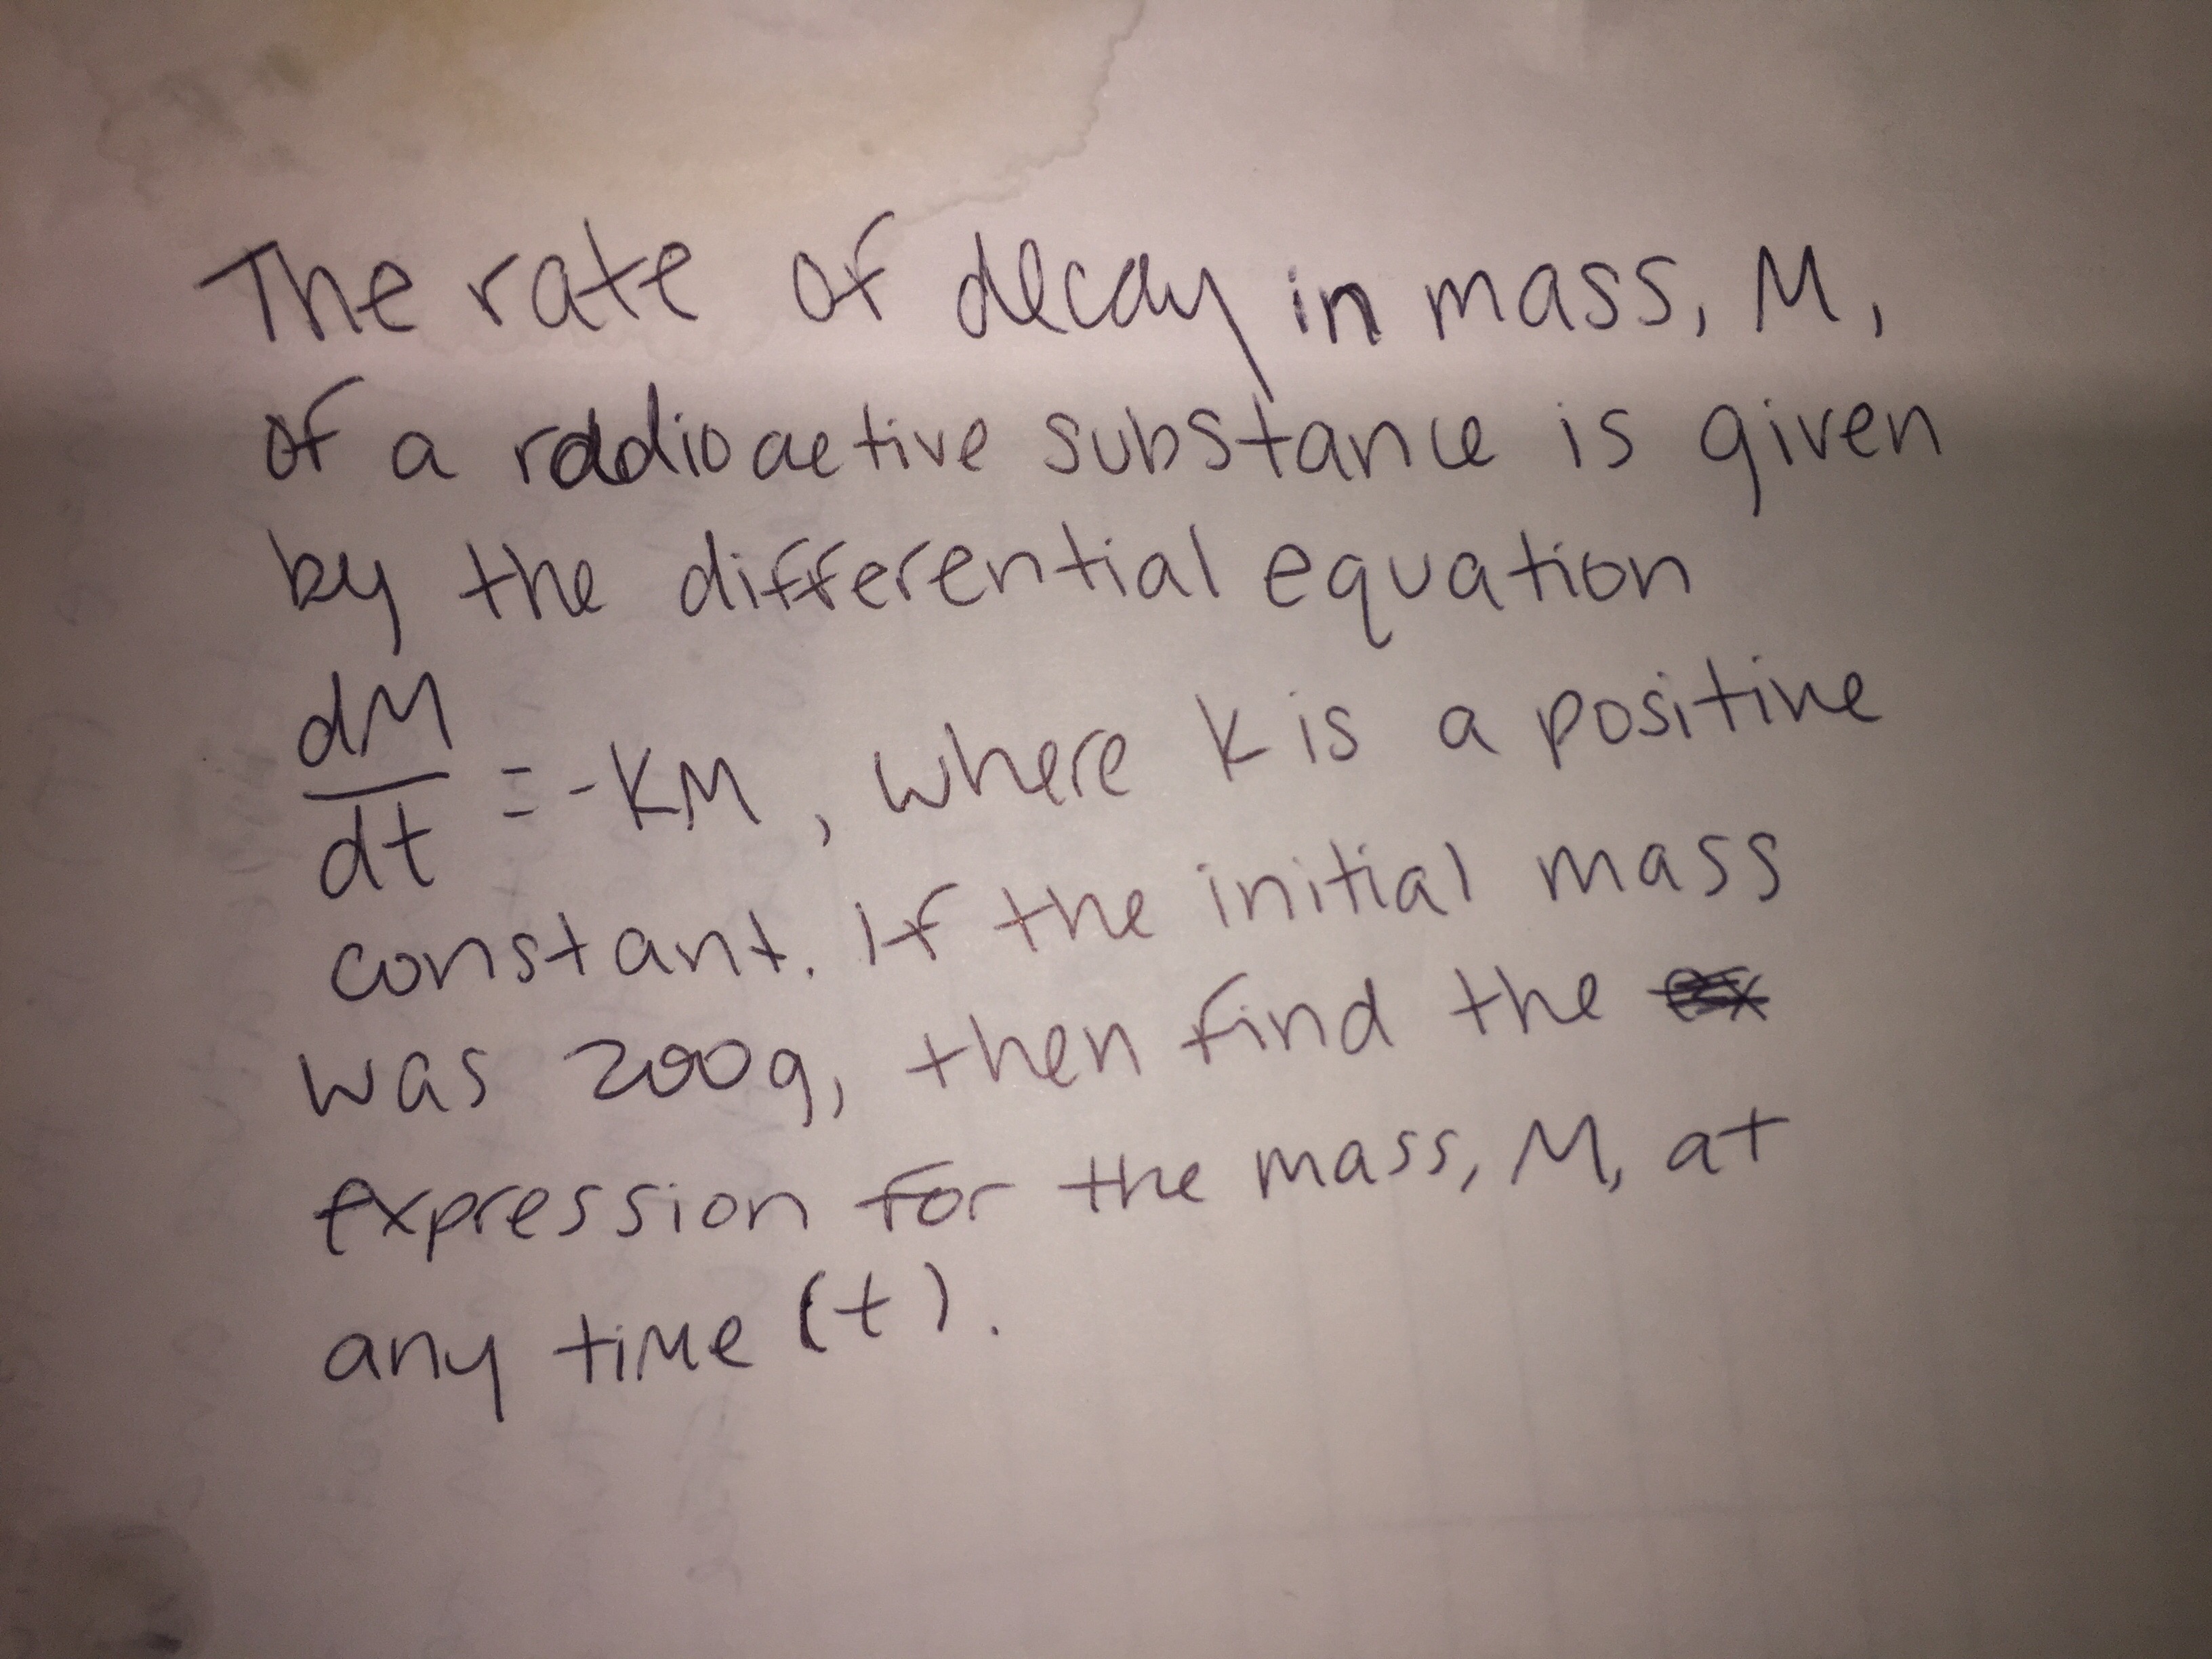 The rate of decay in mass, M,
of a radioactive substance is given
by the differential equation
dM/dt = -KM, where K is a positive
constant. If the initial mass
was 200g, then find the
expression for the mass, M, at
any time (t).